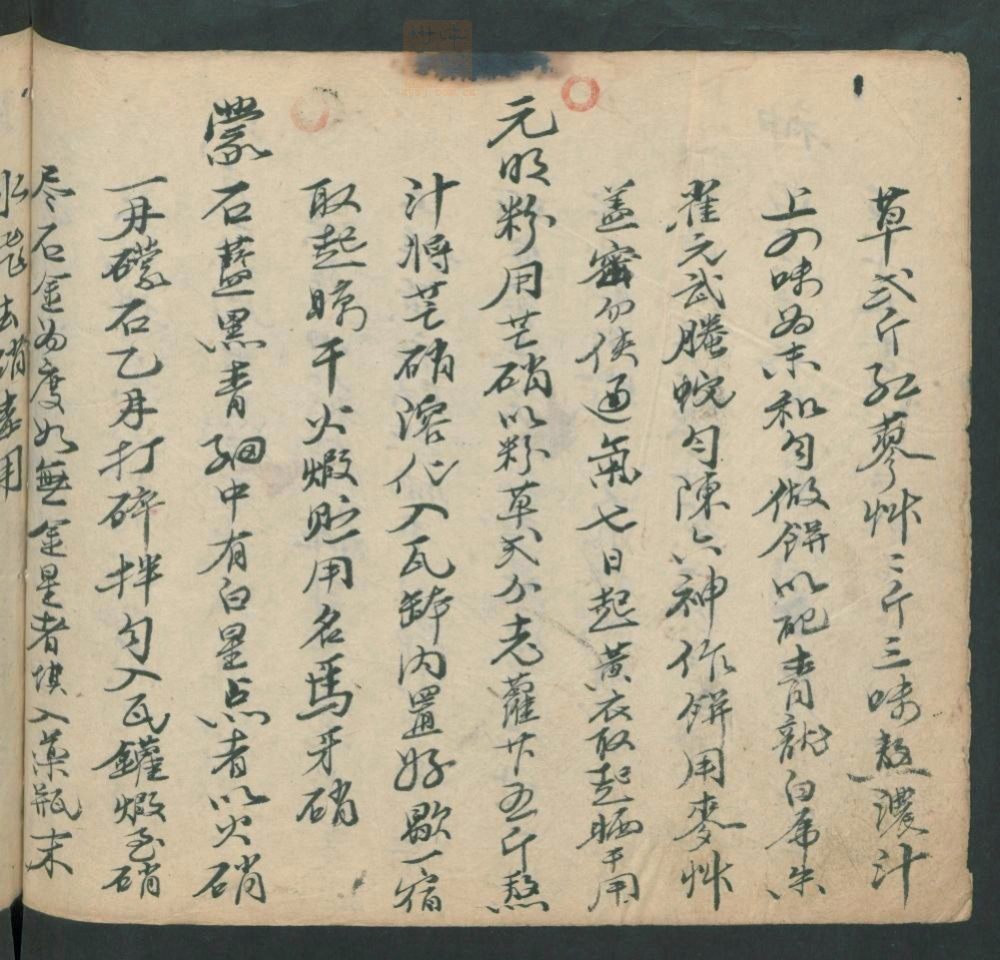 草弍斤紅蓼艸二斤三味熬濃汁
上四味为末和匀做餅以配青龍白虎朱
雀元武螣蛇勾陳六神作餅用麥艸
盖密勿使通氣七日起黃衣取起晒干用
元明粉用芒硝以粉草弍分老蘿卜五斤熬
汁將芒硝溶化入瓦缽内置好歇一宿
取起晾干火煆貯用名馬牙硝
蒙石藍黑青細中有白星点者以火硝
一毋礞石乙毋打碎拌匀入瓦罐煆至硝
尽石金为度如無金星者慎入藥瓶末
水飛去硝毒用